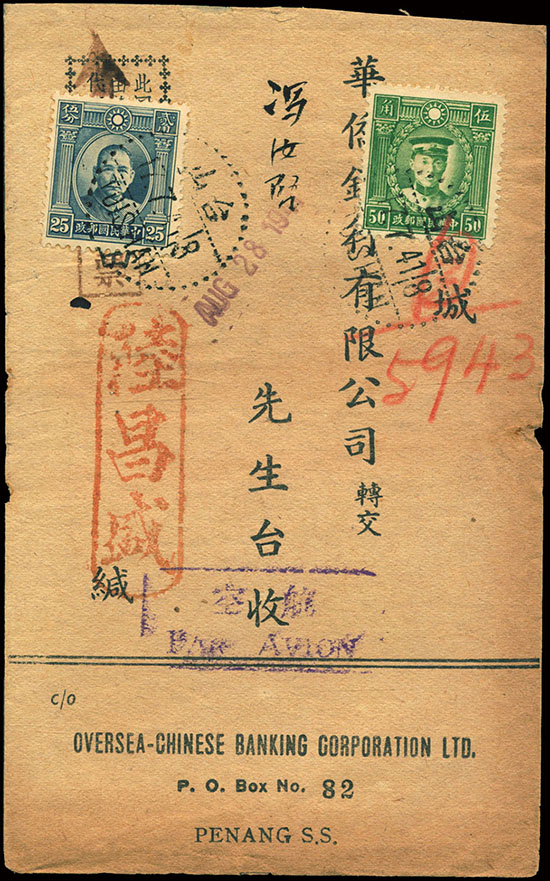 伍角
中華民國郵政
50 50
25 25
中華民國郵政
台山
城
華僑銀行有限公司
轉交
馮汝
先生台收
AUG 28 19
5943
票
陸昌盛
緘
航空
PAR AVION
c/o
OVERSEA-CHINESE BANKING CORPORATION LTD.
P. O. Box No. 82
PENANG S.S.